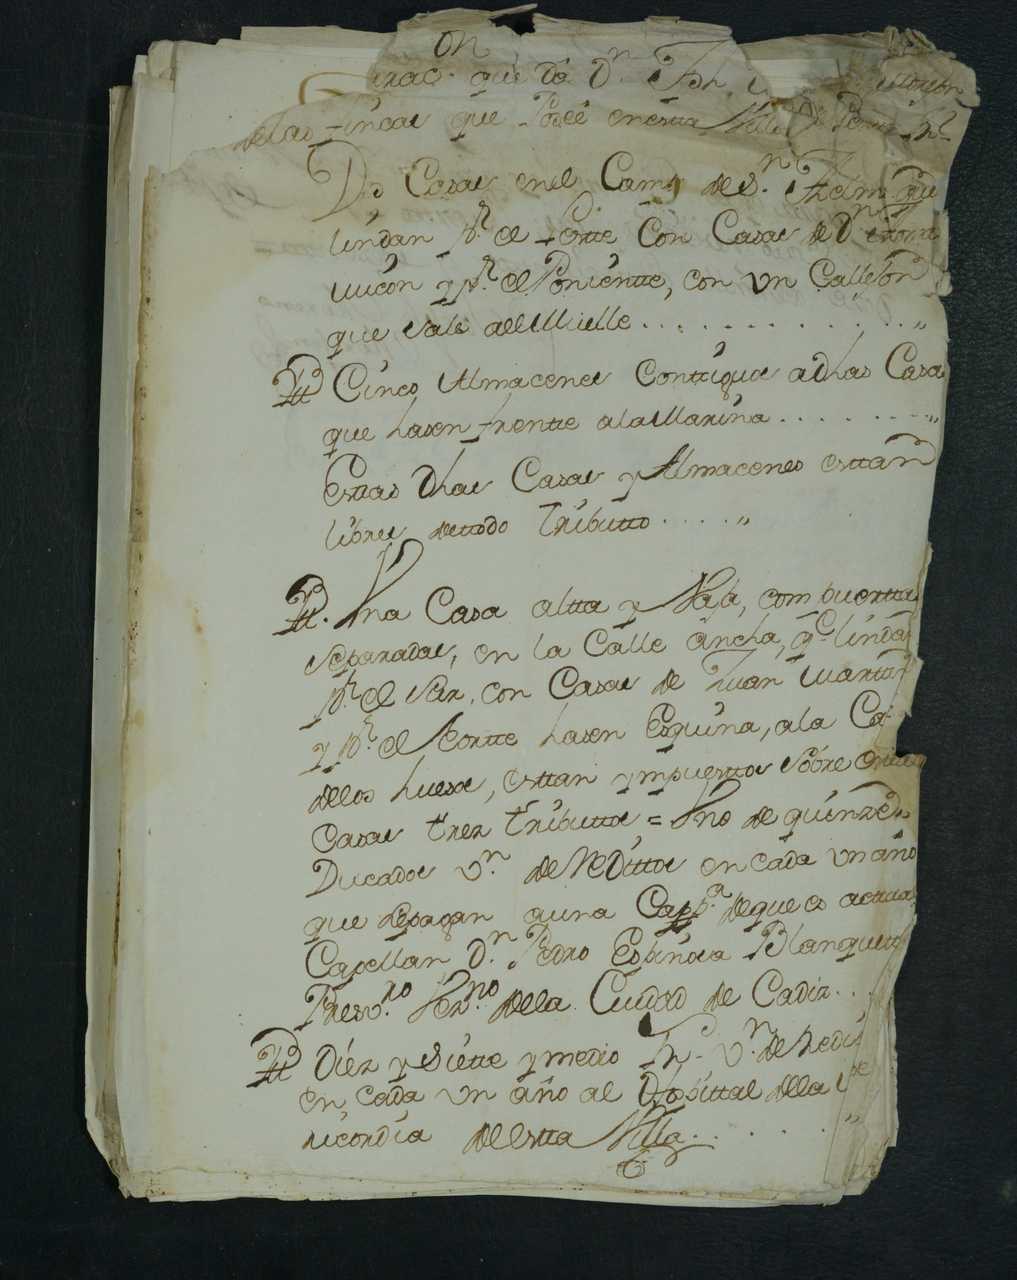 on
que da Dn
delas fincas que Posêê enesta Villa de
Dos Casas en el Campo de Sn Telmo que
lindan pr el Norte Con Casas de Dn
y pr el Poniente, con un Callejon
que sale al Muelle . . . . . . . . . . . . . . . „
Ytt Cinco Almacenes Contiguos a dhas Casas
que hasen frente ala Marina . . . . . . . . . „
Esttas dhas Casas y Almacenes esttan
libres de ttodo tributto . . . . . „
Ytt. Una Casa altta y Baja, com puerttas
separadas, en la Calle ancha, qe lindan
pr el Sur, con Casas de Juan Martin
y pr el Nortte hasen Esquina, ala Ca
delos huesos, esttan ympuesttos sobre
Casas tres tributtos = Uno de quinze
Ducados vn de Redittos en cada un año
que se pagan a una Cappa de que es actual
Capellan Dn Pedro Espinosa Blanquetto
Presvro Vezno de la Ciudad de Cadiz . . .
Ytt Diez y Siette y medio rs vn de redi
en cada un año al Hospittal de la
ricordia de estta Villa . . . . . . . „